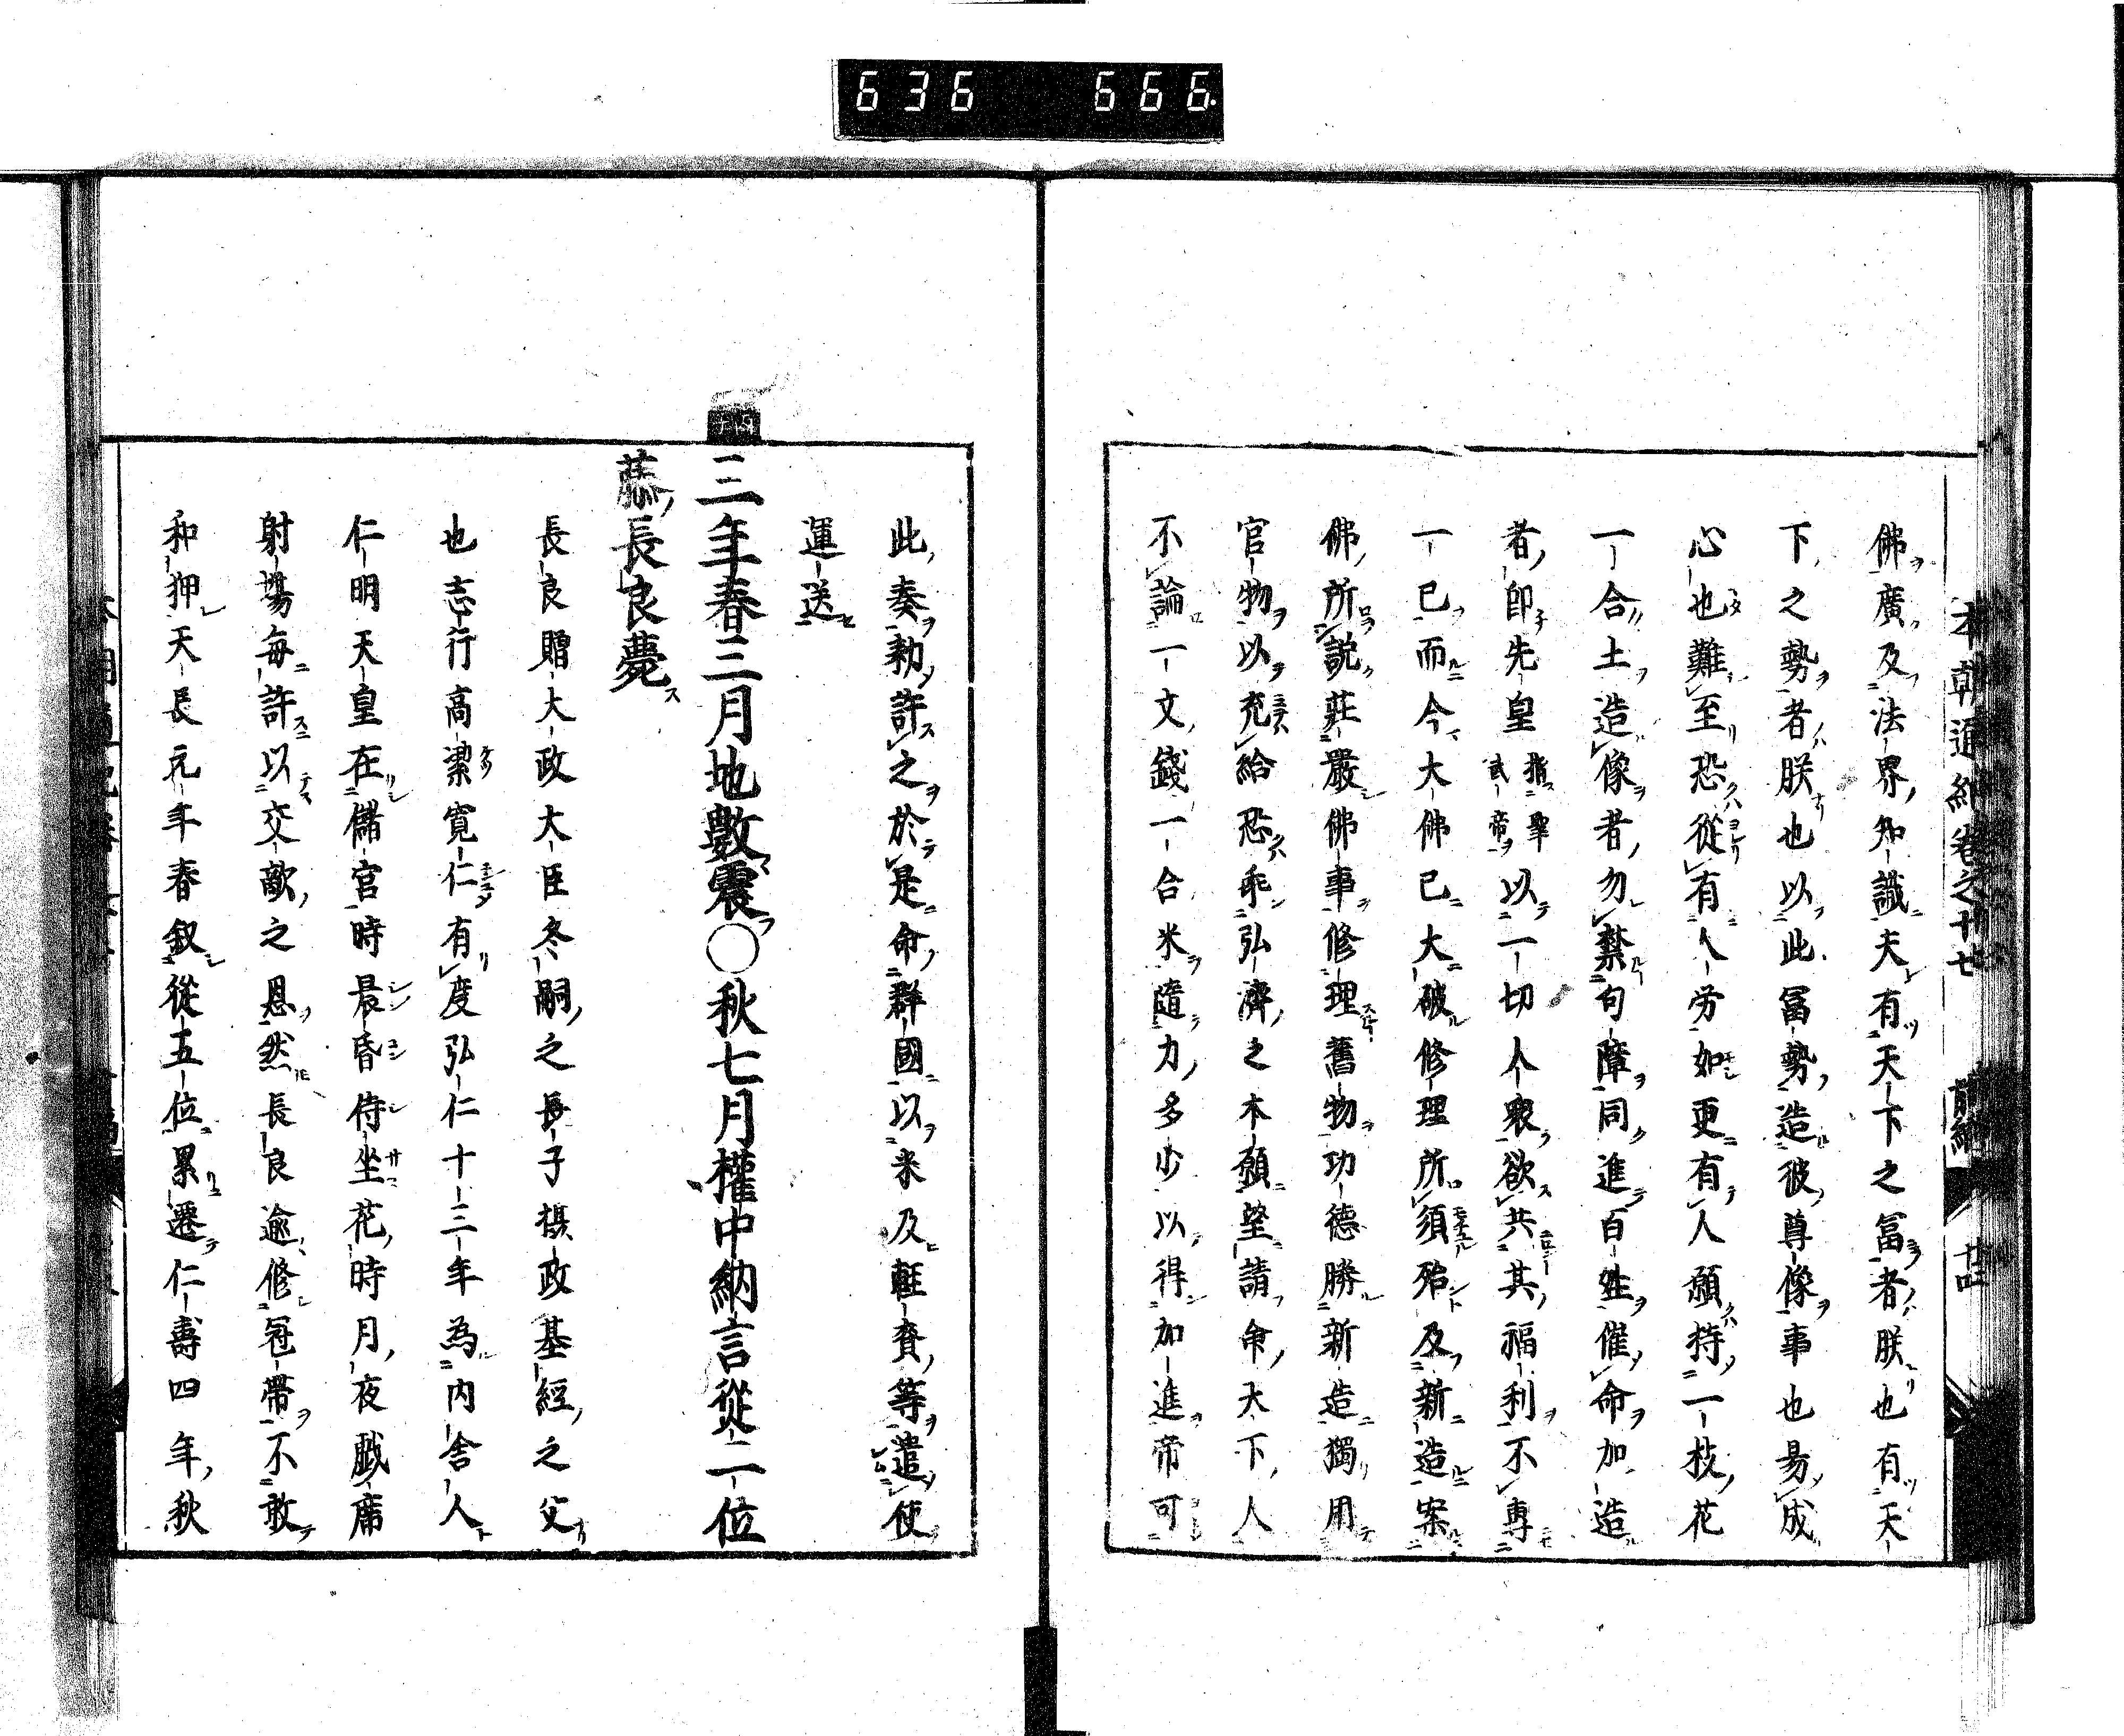 636 666
本朝通紀巻之十七 前編 廿四
佛廣及法界知識夫有天下之冨者朕也有天
下之勢者朕也以此冨勢造彼尊像事也易成
心也難至恐從有人労如更有人願持一枝花
一合土造像者勿禁句障同進百姓催命加造
者即先皇指聖武帝以一切人衆欲共其福利不専
一已而今大佛已大破修理所須殆及新造案
佛所説荘嚴佛事修理舊物功德勝新造獨用
官物以充給恐乖弘濟之本願望請命天下人
不論一文錢一合米隨力多少以得加進帝可
此奏勅許之於是命群國以米及軽賚等遣使
運送
丙子
三年春三月地數震〇秋七月權中納言從二位
藤長良薨
長良贈大政大臣冬嗣之長子摂政基經之父
也志行高潔寛仁有度弘仁十三年為内舎人
仁明天皇在儲宮時晨昏侍坐花時月夜戯席
射場毎許以交敵之恩然長良逾修冠帶不敢
和狎天長元年春叙從五位累遷仁壽四年秋